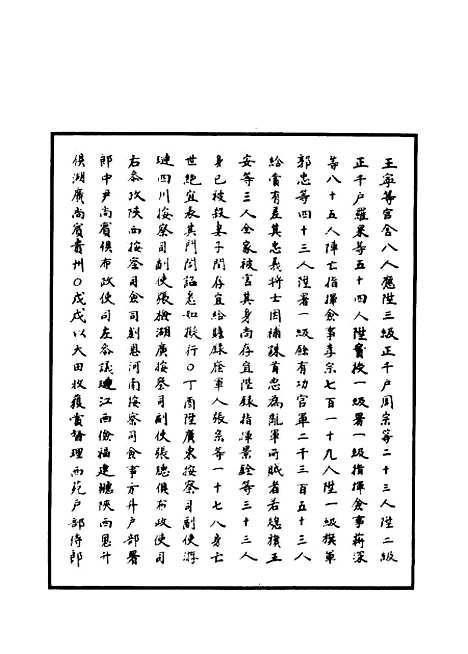 王寧等官舍八人應陞三級正千戶周宗等二十三人陞二級
正千戶羅杲等五十四人陞實授一級署一級指揮僉事蔣深
等八十五人陣亡指揮僉事李宗七百一十九人陞一級旗軍
郭忠等四十三人陞署一級餘有功官軍二千三百五十三人
給賞有差其忠義將士因補疎首忠為亂軍所賊者若總旗王
安等三人全家被害其身尚存宜陞錄指揮景銓等三十三人
身已被殺妻子間存宜給贍錄廕軍人張宗等一十七八身亡
世絕宜表其門閭詔悉如擬行○丁酉陞廣東按察司副使游
璉四川按察司副使張檜湖廣按察司副使張璁俱布政使司
右參政陝西按察司僉司劉恩河南按察司僉事方升戶部署
郎中尹尚賓俱布政使司左參議璉江西儉福建璁陝西恩升
俱湖廣尚賓貴州○戊戌以大田收獲賞督理西苑戶部侍郎